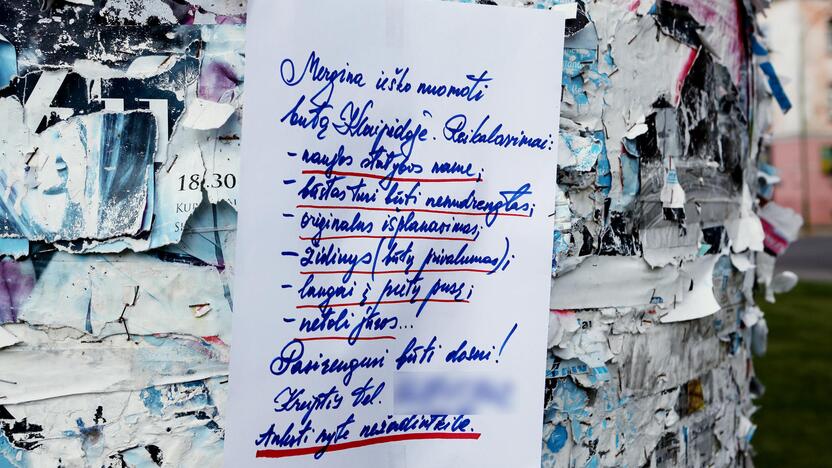 18.30
KUR
Mergina ieško nuomoti
butą Klaipėdoje. Reikalavimai:
- naujos statybos name;
- būstas turi būti nenudrengtas;
- originalus išplanavimas;
- židinys (būtų privalumas);
- langai į pietų pusę;
- netoli jūros...
Pasirengusi būti dosni!
Kreiptis tel.
Anksti ryte nežadinkite.